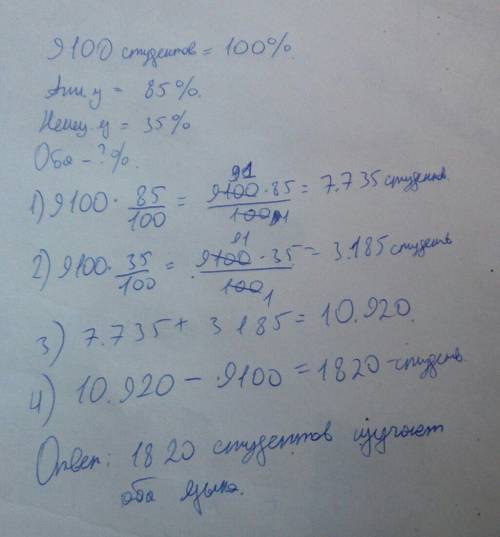 9100 студентов = 100%.
Англ. у = 85%.
Немец. у = 35%
Оба - ?%.
1) 9100 · 85/100 = 9100 · 85/100 91 1 = 7.735 студентов.
2) 9100 · 35/100 = 9100 · 35/100 91 1 = 3.185 студентов
3) 7.735 + 3185 = 10.920.
4) 10.920 - 9100 = 1820 - студентов.
Ответ: 1820 студентов изучают
оба языка.